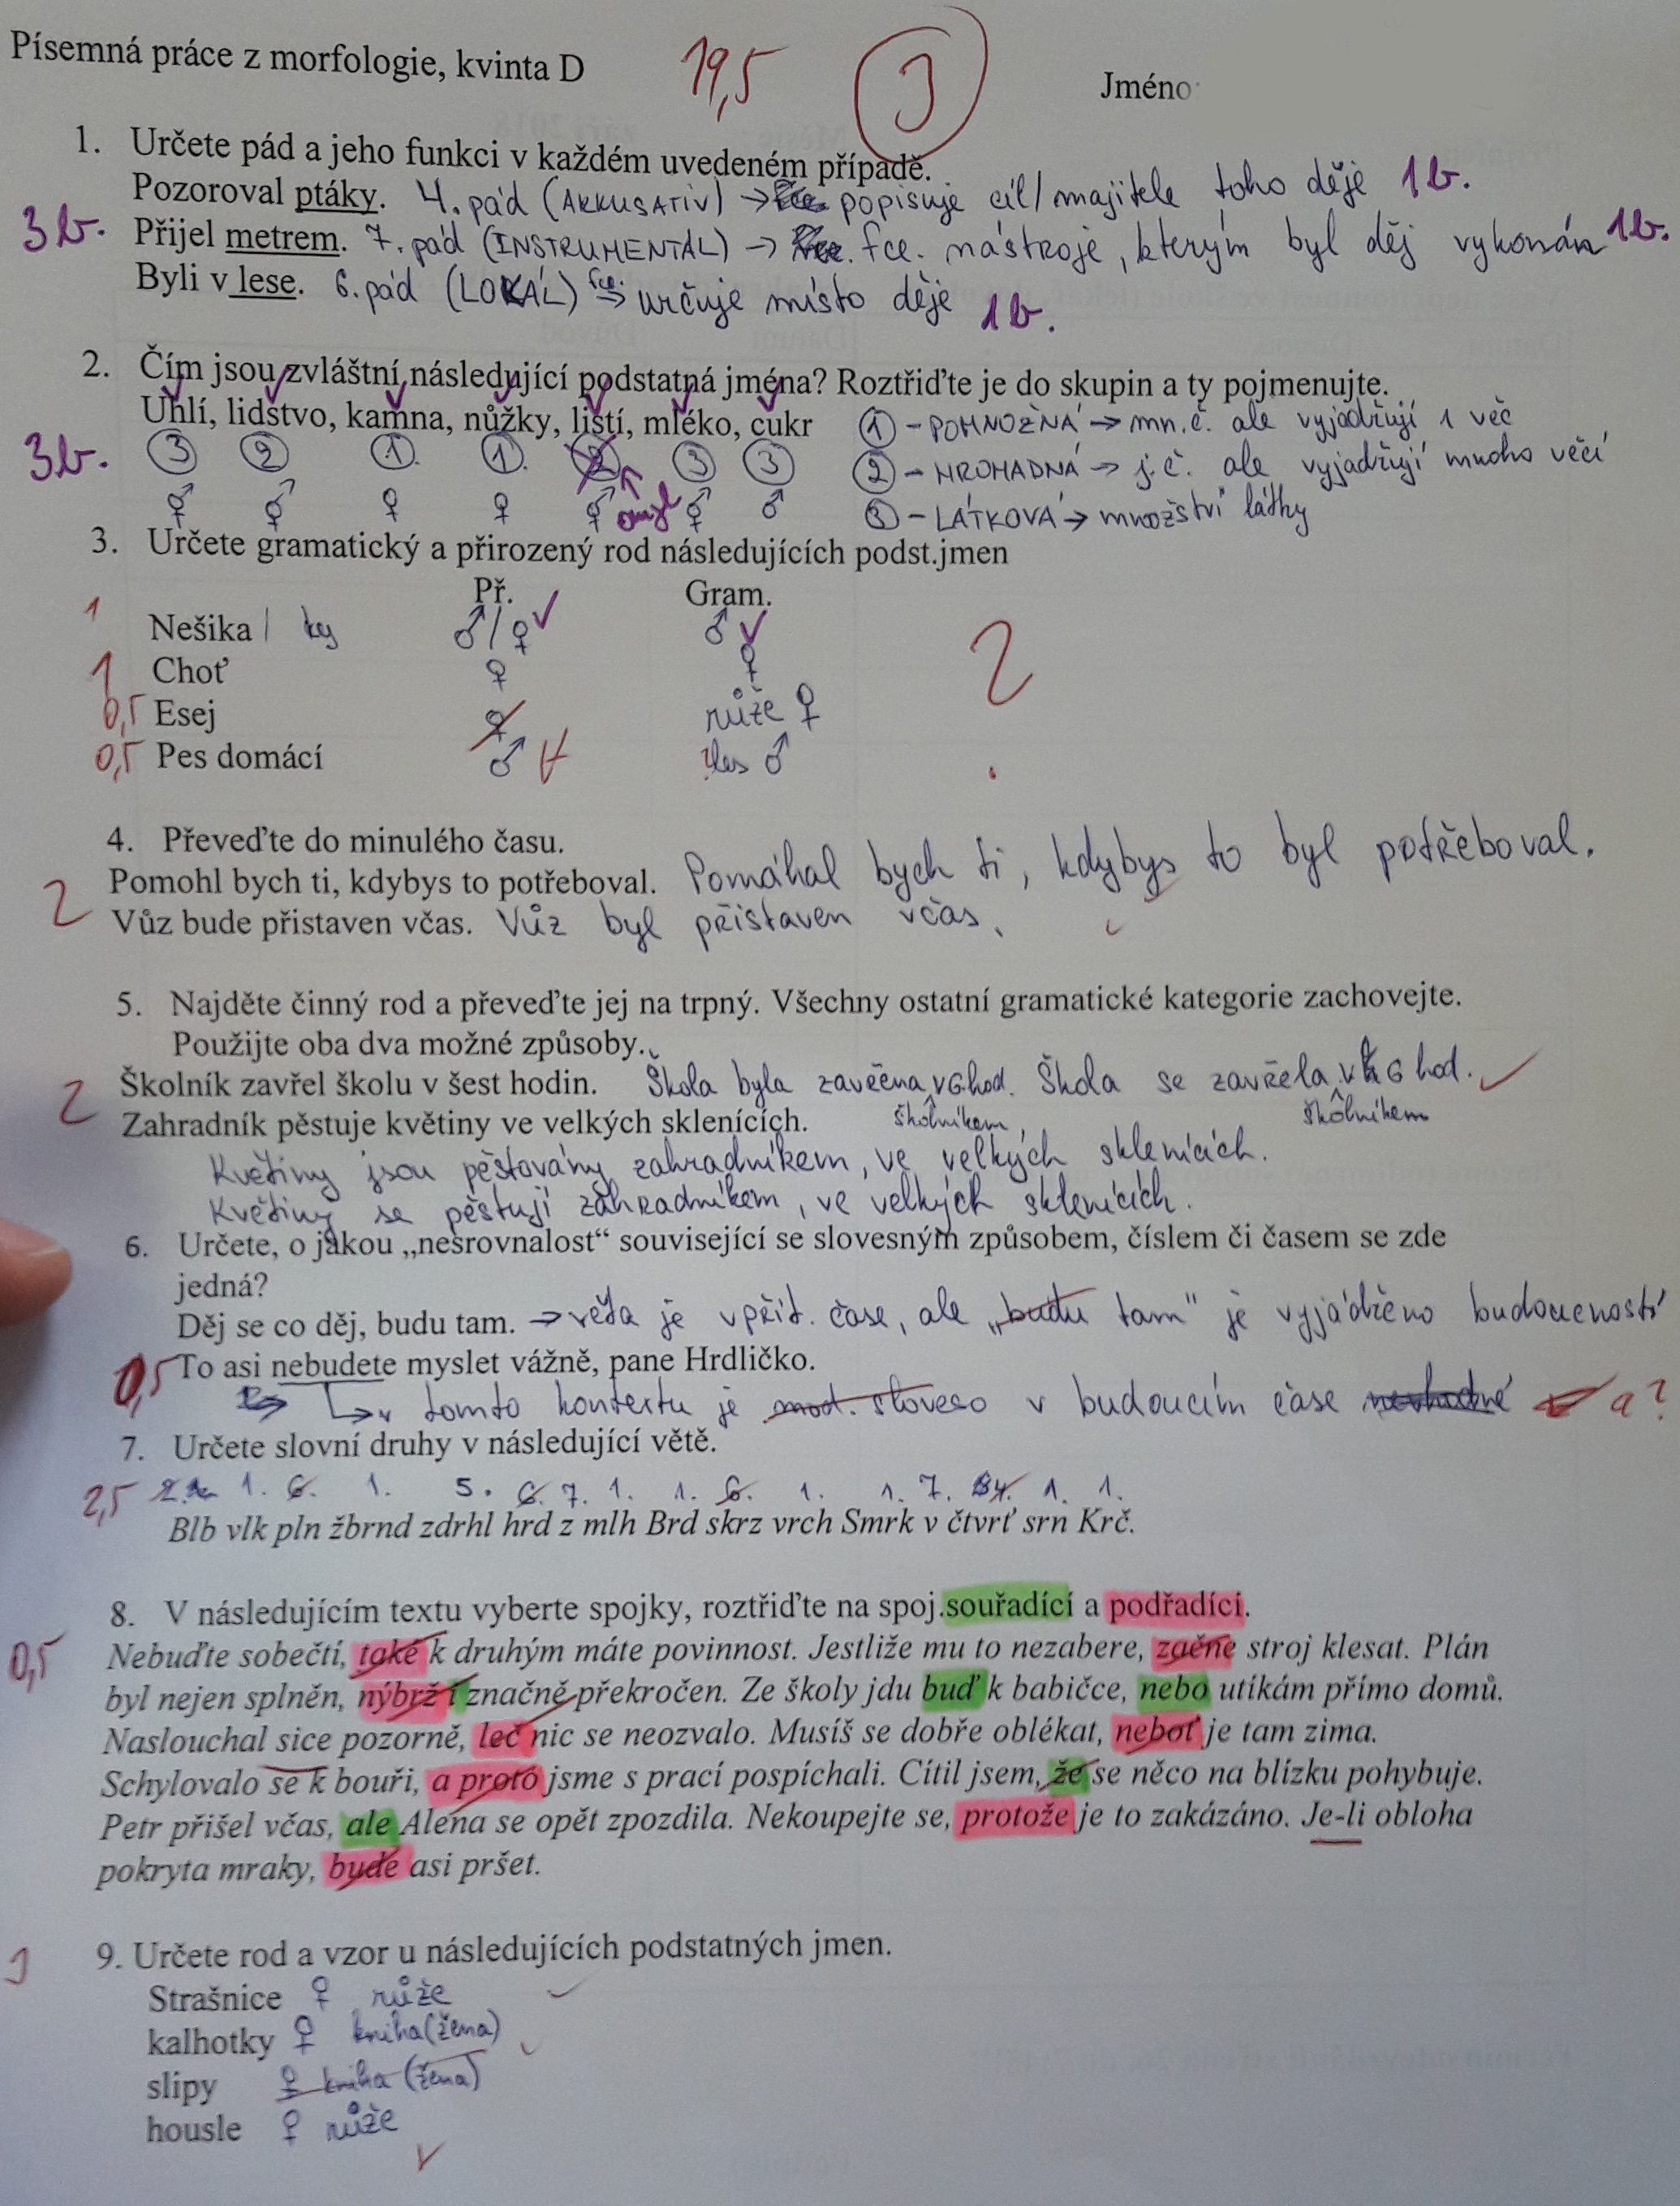 Písemná práce z morfologie, kvinta D 19,5 3 Jméno
1. Určete pád a jeho funkci v každém uvedeném případě.
Pozoroval ptáky. 4. pád (AKKUSATIV) → popisuje cíl/majitele toho děje 1b.
3b. Přijel metrem. 7. pád (INSTRUMENTÁL) → fce. nástroje, kterým byl děj vykonán 1b.
Byli v lese. 6. pád (LOKÁL) fce. → určuje místo děje 1b.
2. Čím jsou zvláštní následující podstatná jména? Roztřiďte je do skupin a ty pojmenujte.
Uhlí, lidstvo, kamna, nůžky, listí, mléko, cukr ① - POMNOŽNÁ → mn. č. ale vyjadřují 1 věc
3b. ③ ② ① ① ② ③ ③ ② - HROMADNÁ → j. č. ale vyjadřují mnoho věcí
⚥ ⚥ ♀ ♀ ⚥ omyl ⚥ ♂ ③ - LÁTKOVÁ → množství látky
3. Určete gramatický a přirozený rod následujících podst.jmen
Př. Gram.
1 Nešika / ky ♂/♀ ♂
1 Choť ♀ ♀
0,5 Esej ♀ růže ♀
0,5 Pes domácí ♂ ♂
4. Převeďte do minulého času.
Pomohl bych ti, kdybys to potřeboval. Pomáhal bych ti, kdybys to byl potřeboval.
2 Vůz bude přistaven včas. Vůz byl přistaven včas.
5. Najděte činný rod a převeďte jej na trpný. Všechny ostatní gramatické kategorie zachovejte.
Použijte oba dva možné způsoby.
2 Školník zavřel školu v šest hodin. Škola byla zavřena v 6 hod. Škola se zavřela v 6 hod.
Zahradník pěstuje květiny ve velkých sklenících. školníkem školníkem
Květiny jsou pěstovány zahradníkem, ve velkých sklenících.
Květiny se pěstují zahradníkem, ve velkých sklenících.
6. Určete, o jakou „nesrovnalost“ související se slovesným způsobem, číslem či časem se zde
jedná?
Děj se co děj, budu tam. → věta je v přít. čase, ale „budu tam" je vyjádřeno budoucností
0,5 To asi nebudete myslet vážně, pane Hrdličko.
↳ v tomto kontextu je mod. sloveso v budoucím čase a?
7. Určete slovní druhy v následující větě.
2,5 2. 1. 6. 1. 5. 6. 7. 1. 1. 6. 1. 1. 7. 4. 1. 1.
Blb vlk pln žbrnd zdrhl hrd z mlh Brd skrz vrch Smrk v čtvrť srn Krč.
8. V následujícím textu vyberte spojky, roztřiďte na spoj.souřadící a podřadící.
0,5 Nebuďte sobečtí, také k druhým máte povinnost. Jestliže mu to nezabere, začne stroj klesat. Plán
byl nejen splněn, nýbrž i značně překročen. Ze školy jdu buď k babičce, nebo utíkám přímo domů.
Naslouchal sice pozorně, leč nic se neozvalo. Musíš se dobře oblékat, neboť je tam zima.
Schylovalo se k bouři, a proto jsme s prací pospíchali. Cítil jsem, že se něco na blízku pohybuje.
Petr přišel včas, ale Alena se opět zpozdila. Nekoupejte se, protože je to zakázáno. Je-li obloha
pokryta mraky, bude asi pršet.
3 9. Určete rod a vzor u následujících podstatných jmen.
Strašnice ♀ růže
kalhotky ♀ kniha (žena)
slipy ♀ kniha (žena)
housle ♀ růže